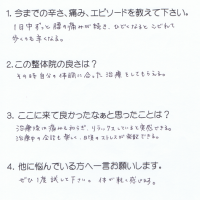 1. 今までの辛さ、痛み、エピソードを教えて下さい。
1日中ずっと腰の痛みが続き、ひどくなると
歩くのも辛くなる。
2.この整体院の良さは?
その時自分の体調に合った治療をしてもらえる。
3. ここに来て良かったなぁと思ったことは?
治療後は痛みも和らぎ、リラックスしていると実感できる。
治療中の会話も楽しく、日頃のストレスが発散できる。
4. 他に悩んでいる方へ一言お願いします。
ぜひ1度試して下さい。体が軽く感じる。